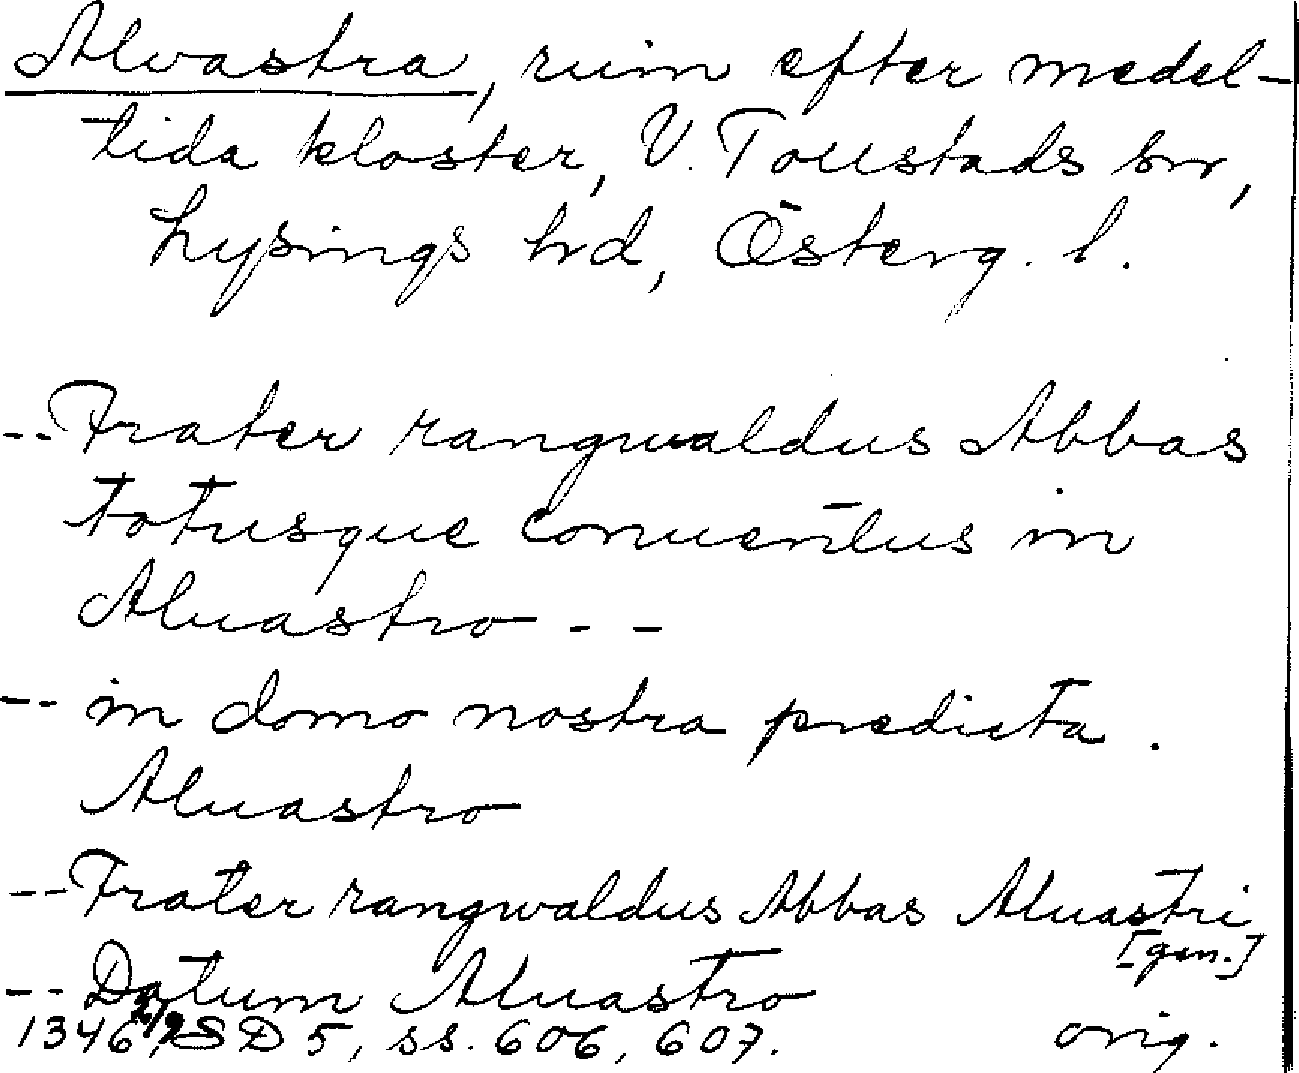 Alvastra, ruin efter medel-
tida kloster, V. Tollstads sn,
Lysings hd, Österg. l.
-- Frater rangwaldus Abbas
totusque conuentus in
Aluastro - -
-- in domo nostra predicta .
Aluastro
-- Frater rangwaldus Abbas Aluastri
[gen.]
-- Datum Aluastro
1346 2/9, SD 5, ss. 606, 607. orig.